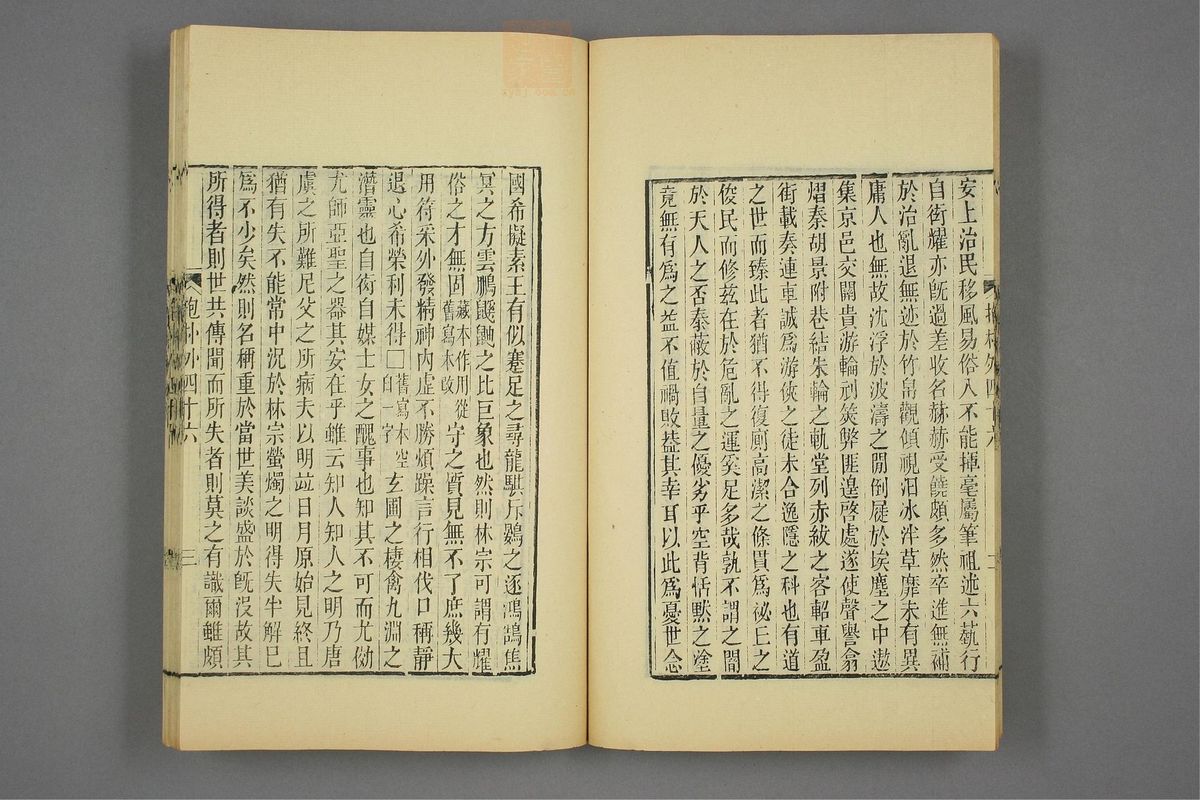 安上治民移風易俗入不能揮毫屬筆祖述六藝行
自衒燿亦旣過差收名赫赫受饒頗多然卒進無補
於治亂退無迹於竹帛觀傾視汨冰泮草靡未有異
庸人也無故沈浮於波濤之閒倒屣於埃塵之中遨
集京邑交關貴游輪刓筴弊匪遑啓處遂使聲譽翕
熠秦胡景附巷結朱輪之軌堂列赤紱之客軺車盈
街載奏連車誠爲游俠之徒未合逸隱之科也有道
之世而臻此者猶不得復廁高潔之條貫爲祕王之
俊民而修茲在於危亂之運奚足多哉孰不謂之闇
於天人之否泰蔽於自量之優劣乎空背恬默之塗
竟無有爲之益不值禍敗葢其幸耳以此爲憂世念
國希擬素王有似蹇足之尋龍騏斥鷃之逐鴻鵠焦
冥之方雲鵬鼷鼬之比巨象也然則林宗可謂有耀
俗之才無固藏本作用從舊寫本改守之質見無不了庶幾大
用符采外發精神內虛不勝煩躁言行相伐口稱靜
退心希榮利未得□舊寫本空白一字玄圃之棲禽九淵之
潛靈也自衒自媒士女之醜事也知其不可而尤効
尤師亞聖之器其安在乎雖云知人知人之明乃唐
虞之所難尼父之所病夫以明竝日月原始見終且
猶有失不能常中況於林宗螢燭之明得失半解已
爲不少矣然則名稱重於當世美談盛於旣沒故其
所得者則世共傳聞而所失者則莫之有識爾雖頗
抱朴外四十六
三